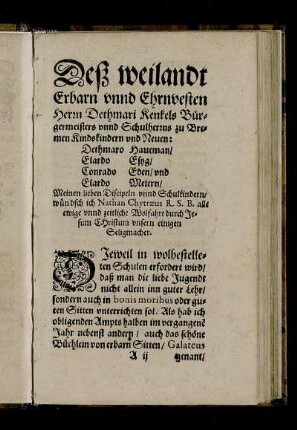 Deß weilandt
Erbarn vnnd Ehrnvesten
Herrn Dethmari Kenkels Bür-
germeisters vnnd Schulherrns zu Bre-
men Kindskindern vnd Neuen:
Dethmaro Haueman/
Elardo Esych/
Conrado Eden/ vnd
Elardo Meiern/
Meinen lieben Discipeln vnnd Schulkindern/
wündsch ich Nathan Chytræus R. S. B. alle
ewige vnnd zeitliche Wolfahrt durch Je-
sum Christum vnsern einigen
Seligmacher.
DJeweil in wolbestelle-
ten Schulen erfordert wird/
daß man die liebe Jugendt
nicht allein inn guter Lehr/
sondern auch in bonis moribus oder gu-
ten Sitten vnterrichten sol. Als hab ich
obligenden Ampts halben im vergangenē
Jahr nebenst andern/ auch das schöne
Büchlein von erbarn Sitten/ Galateus
A ij genant/